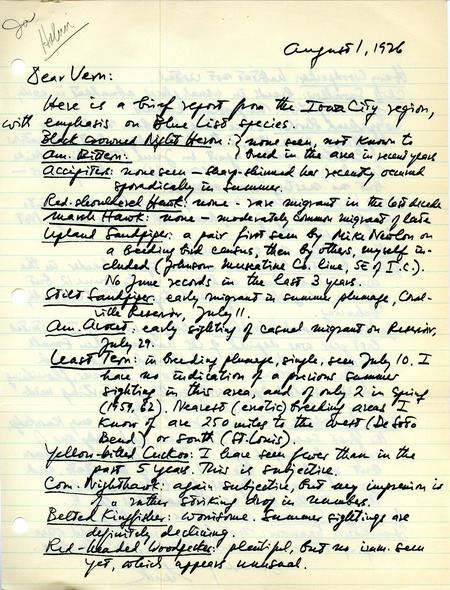 Ia
Halmi
August 1, 1976
Dear Vern:
Here is a brief report from the Iowa City region,
with emphasis on Blue List species.
Black Crowned Night Heron: } none seen, not known to
Am. Bittern: } breed in the area in recent years
Accipiters: none seen - sharp-shinned has recently occurred
sporadically in summer.
Red-shouldered Hawk: none - rare migrant in the last decade
Marsh Hawk: none - moderately common migrant of late
Upland Sandpiper: a pair first seen by Mike Newlon on
a breeding bird census, then by others, myself in-
cluded (Johnson Muscatine Co. line, SE of I.C.).
No June records in the last 3 years.
Stilt Sandpiper: early migrant in summer plumage, Coral-
ville Reservoir, July 11.
Am. Avocet: early sighting of casual migrant on Reservoir,
July 29.
Least Tern: in breeding plumage, single, seen July 10. I
have no indication of a previous summer
sighting in this area, and of only 2 in Spring
(1959, 62). Nearest (erratic) breeding areas I
know of are 250 miles to the west (DeSoto
Bend) or south (St. Louis).
Yellow-billed Cuckoo: I have seen fewer than in the
past 5 years. This is subjective.
Com. Nighthawk: again subjective, but my impression is
of a rather striking drop in numbers.
Belted Kingfisher: worrisome. Summer sightings are
definitely declining.
Red-headed Woodpecker: plentiful, but no imm. seen
yet, which appears unusual.